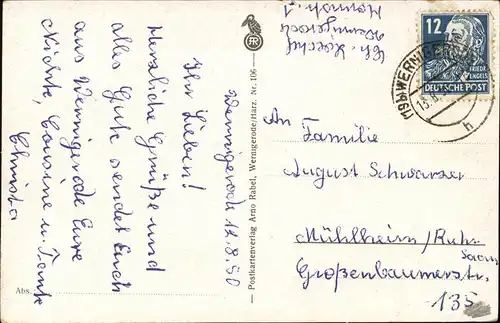 Wernigerode 12.8.50
Ihr Lieben!
Herzliche Grüße und
alles Gute sendet Euch
aus Wernigerode Eure
Nichte, Cousine u. Tante
Christa
Abs.
Ch.
Wernigerode
Postkartenverlag Arno Rabel, Wernigerode/Harz. Nr. 106
12
FRIEDR. ENGELS
DEUTSCHE POST
(19b) WERNIGERODE
h
An Familie
August Schwarzer
Mühlheim/Ruhr
Saarn
Großenbaumerstr.
135